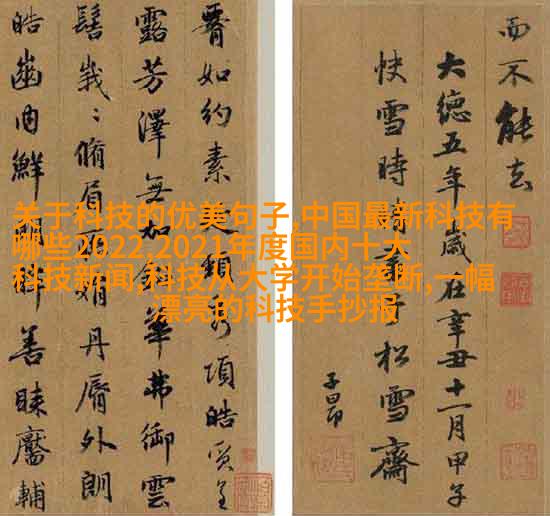 关于科技的优美句子,中国最新科技有
哪些2022,2021年度国内十大
科技新闻,科技从大学开始垄断,一幅
漂亮的科技手抄报
而不能去
大德五年歲在辛丑十一月甲子
快雪時書于松雪齋
子昂
脣如約素頸秀項皓質呈
露芳澤無加華弗御雲
髻峩〻脩眉娟丹脣外朗
皓齒內鮮眸善睞靨輔